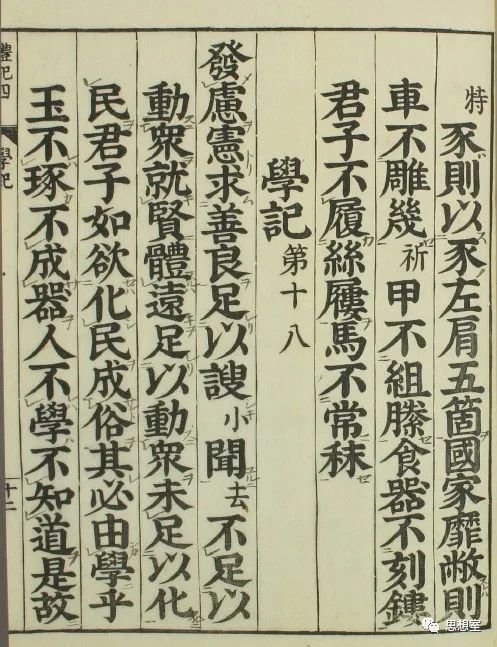 特豕則以豕左肩五箇國家靡敝則
車不雕幾祈甲不組縢食器不刻鏤
君子不履絲屨馬不常秣
學記第十八
發慮憲求善良足以謏小聞去不足以
動衆就賢體遠足以動衆未足以化
民君子如欲化民成俗其必由學乎
玉不琢不成器人不學不知道是故
禮記四 學記 十二
思想室